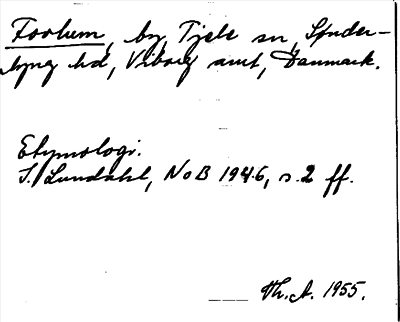 Foolum, by, Tjele sn, Sønder-
lyng hd, Viborg amt, Danmark.
Etymologi.
I. Lundahl, NoB 1946, s. 2 ff.
Th. A. 1955.